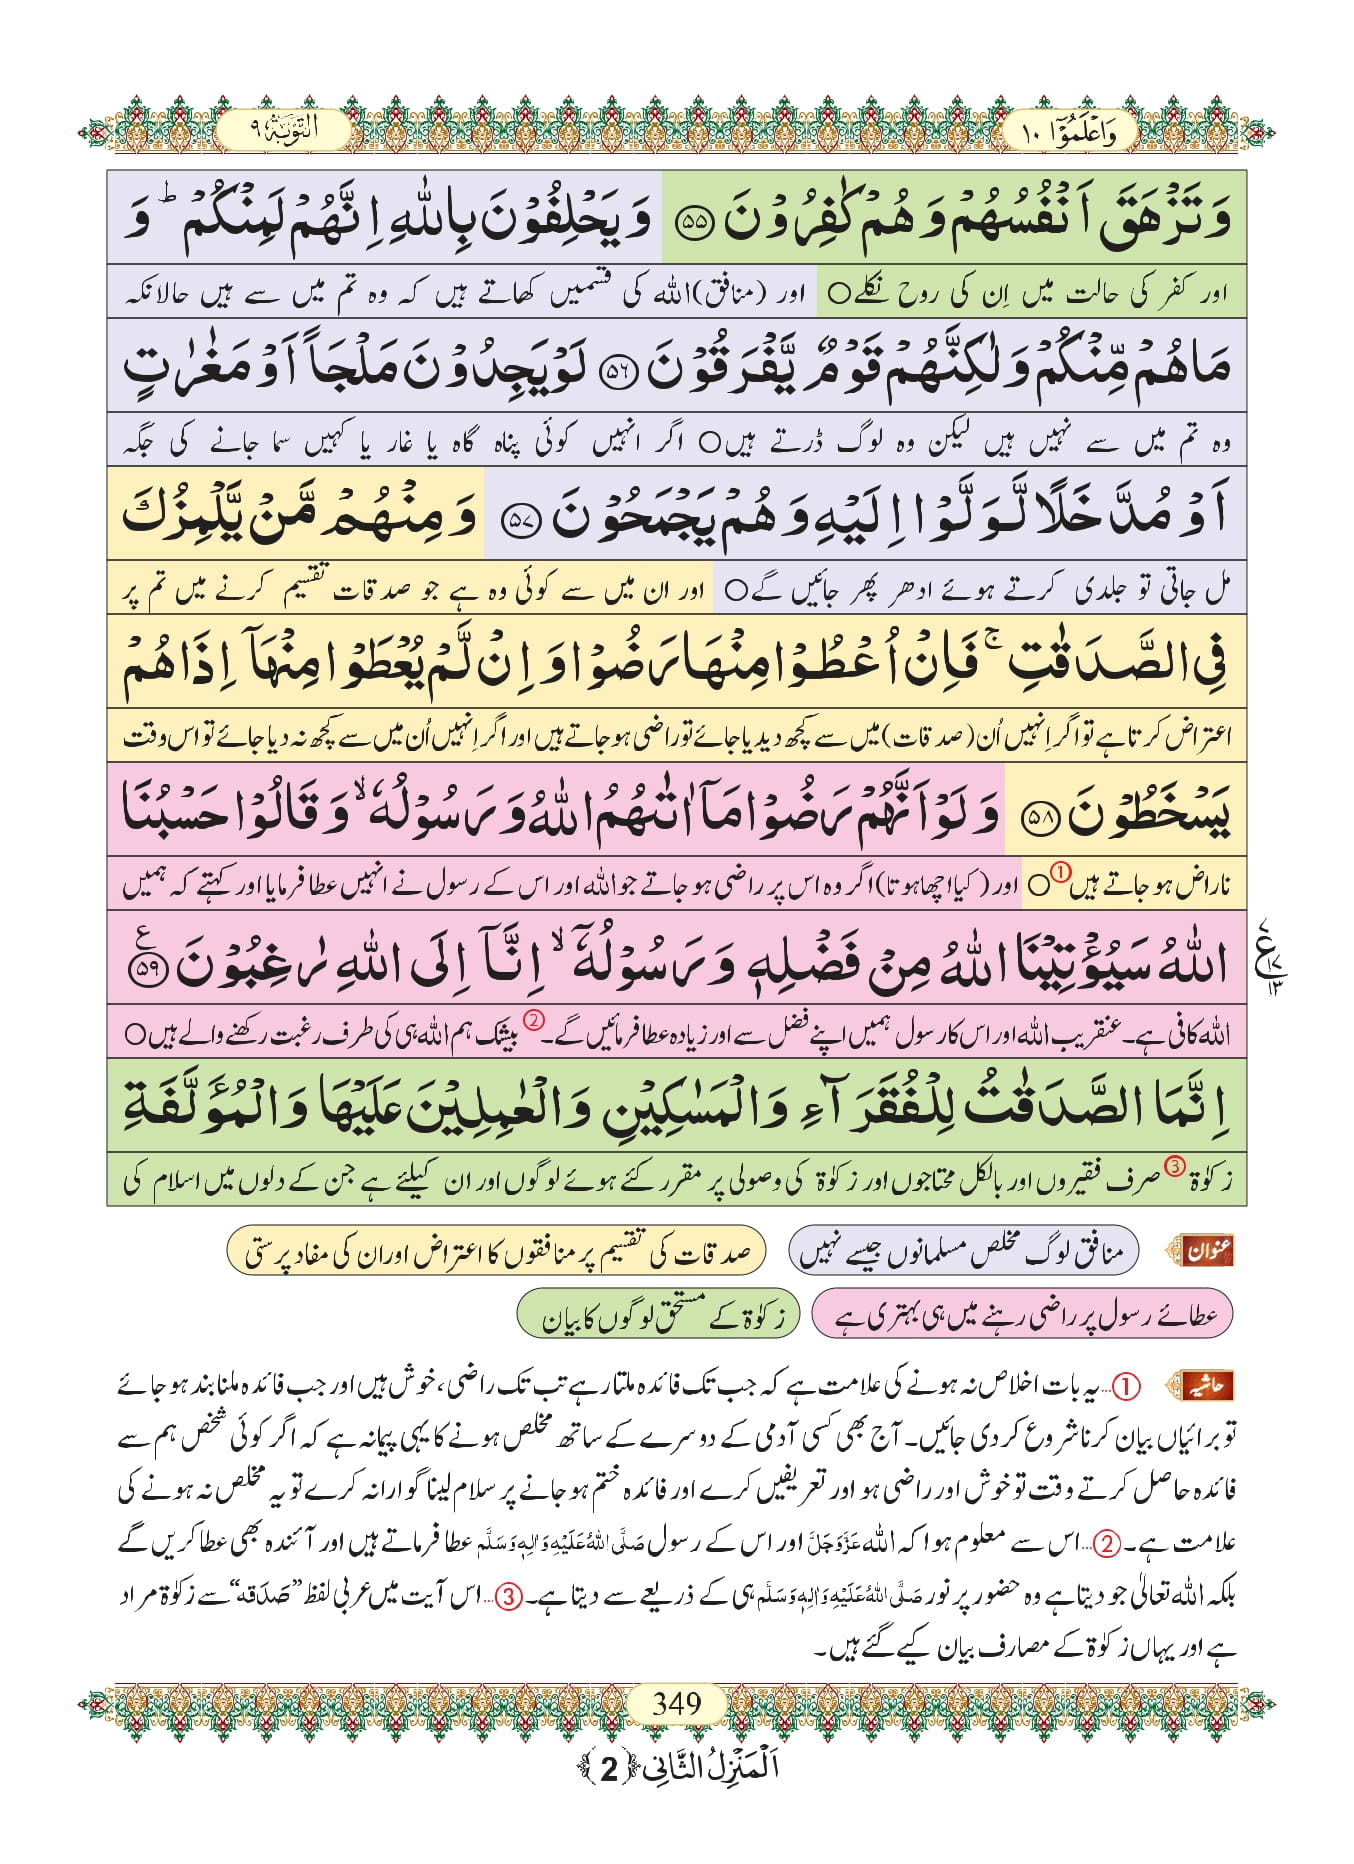 وَاعْلَمُوْۤا ١٠
التَّوْبَة ٩
وَ تَزْهَقَ اَنْفُسُهُمْ وَ هُمْ كٰفِرُوْنَ ﴿۵۵﴾ وَ یَحْلِفُوْنَ بِاللّٰهِ اِنَّهُمْ لَمِنْكُمْ ؕ وَ
اور کفر کی حالت میں اِن کی روح نکلے○ اور (منافق) اللہ کی قسمیں کھاتے ہیں کہ وہ تم میں سے ہیں حالانکہ
مَا هُمْ مِّنْكُمْ وَ لٰكِنَّهُمْ قَوْمٌ یَّفْرَقُوْنَ ﴿۵۶﴾ لَوْ یَجِدُوْنَ مَلْجَاً اَوْ مَغٰرٰتٍ
وہ تم میں سے نہیں ہیں لیکن وہ لوگ ڈرتے ہیں○ اگر انہیں کوئی پناہ گاہ یا غار یا کہیں سما جانے کی جگہ
اَوْ مُدَّخَلًا لَّوَلَّوْا اِلَیْهِ وَ هُمْ یَجْمَحُوْنَ ﴿۵۷﴾ وَ مِنْهُمْ مَّنْ یَّلْمِزُكَ
مل جاتی تو جلدی کرتے ہوئے ادھر پھر جائیں گے○ اور ان میں سے کوئی وہ ہے جو صدقات تقسیم کرنے میں تم پر
فِی الصَّدَقٰتِ ۚ فَاِنْ اُعْطُوْا مِنْهَا رَضُوْا وَ اِنْ لَّمْ یُعْطَوْا مِنْهَاۤ اِذَا هُمْ
اعتراض کرتا ہے تو اگر اِنہیں اُن (صدقات) میں سے کچھ دیدیا جائے تو راضی ہو جاتے ہیں اور اگر اِنہیں اُن میں سے کچھ نہ دیا جائے تو اس وقت
یَسْخَطُوْنَ ﴿۵۸﴾ وَ لَوْ اَنَّهُمْ رَضُوْا مَاۤ اٰتٰىهُمُ اللّٰهُ وَ رَسُوْلُهٗ ۙ وَ قَالُوْا حَسْبُنَا
ناراض ہو جاتے ہیں①○ اور (کیا اچھا ہوتا) اگر وہ اس پر راضی ہو جاتے جو اللہ اور اس کے رسول نے انہیں عطا فرمایا اور کہتے کہ ہمیں
اللّٰهُ سَیُؤْتِیْنَا اللّٰهُ مِنْ فَضْلِهٖ وَ رَسُوْلُهٗۤ ۙ اِنَّاۤ اِلَى اللّٰهِ رٰغِبُوْنَ ﴿۵۹﴾ ع
٧ ع ١٧ ١٣
اللہ کافی ہے۔ عنقریب اللہ اور اس کا رسول ہمیں اپنے فضل سے اور زیادہ عطا فرمائیں گے۔② بیشک ہم اللہ ہی کی طرف رغبت رکھنے والے ہیں○
اِنَّمَا الصَّدَقٰتُ لِلْفُقَرَآءِ وَ الْمَسٰكِیْنِ وَ الْعٰمِلِیْنَ عَلَیْهَا وَ الْمُؤَلَّفَةِ
زکوٰۃ③ صرف فقیروں اور بالکل محتاجوں اور زکوٰۃ کی وصولی پر مقرر کئے ہوئے لوگوں اور ان کیلئے ہے جن کے دلوں میں اسلام کی
عنوان منافق لوگ مخلص مسلمانوں جیسے نہیں صدقات کی تقسیم پر منافقوں کا اعتراض اور ان کی مفاد پرستی
عطائے رسول پر راضی رہنے میں ہی بہتری ہے زکوٰۃ کے مستحق لوگوں کا بیان
حاشیہ ①...یہ بات اخلاص نہ ہونے کی علامت ہے کہ جب تک فائدہ ملتا رہے تب تک راضی، خوش ہیں اور جب فائدہ ملنا بند ہو جائے
تو برائیاں بیان کرنا شروع کردی جائیں۔ آج بھی کسی آدمی کے دوسرے کے ساتھ مخلص ہونے کا یہی پیمانہ ہے کہ اگر کوئی شخص ہم سے
فائدہ حاصل کرتے وقت تو خوش اور راضی ہو اور تعریفیں کرے اور فائدہ ختم ہو جانے پر سلام لینا گوارا نہ کرے تو یہ مخلص نہ ہونے کی
علامت ہے۔②...اس سے معلوم ہوا کہ اللہ عَزَّوَجَلَّ اور اس کے رسول صَلَّی اللہُ عَلَیْہِ وَاٰلِہٖ وَسَلَّم عطا فرماتے ہیں اور آئندہ بھی عطا کریں گے
بلکہ اللہ تعالیٰ جو دیتا ہے وہ حضور پر نور صَلَّی اللہُ عَلَیْہِ وَاٰلِہٖ وَسَلَّم ہی کے ذریعے سے دیتا ہے۔③...اس آیت میں عربی لفظ ”صَدَقہ“ سے زکوٰۃ مراد
ہے اور یہاں زکوٰۃ کے مصارف بیان کیے گئے ہیں۔
349
اَلْمَنْزِلُ الثَّانِی ﴿2﴾